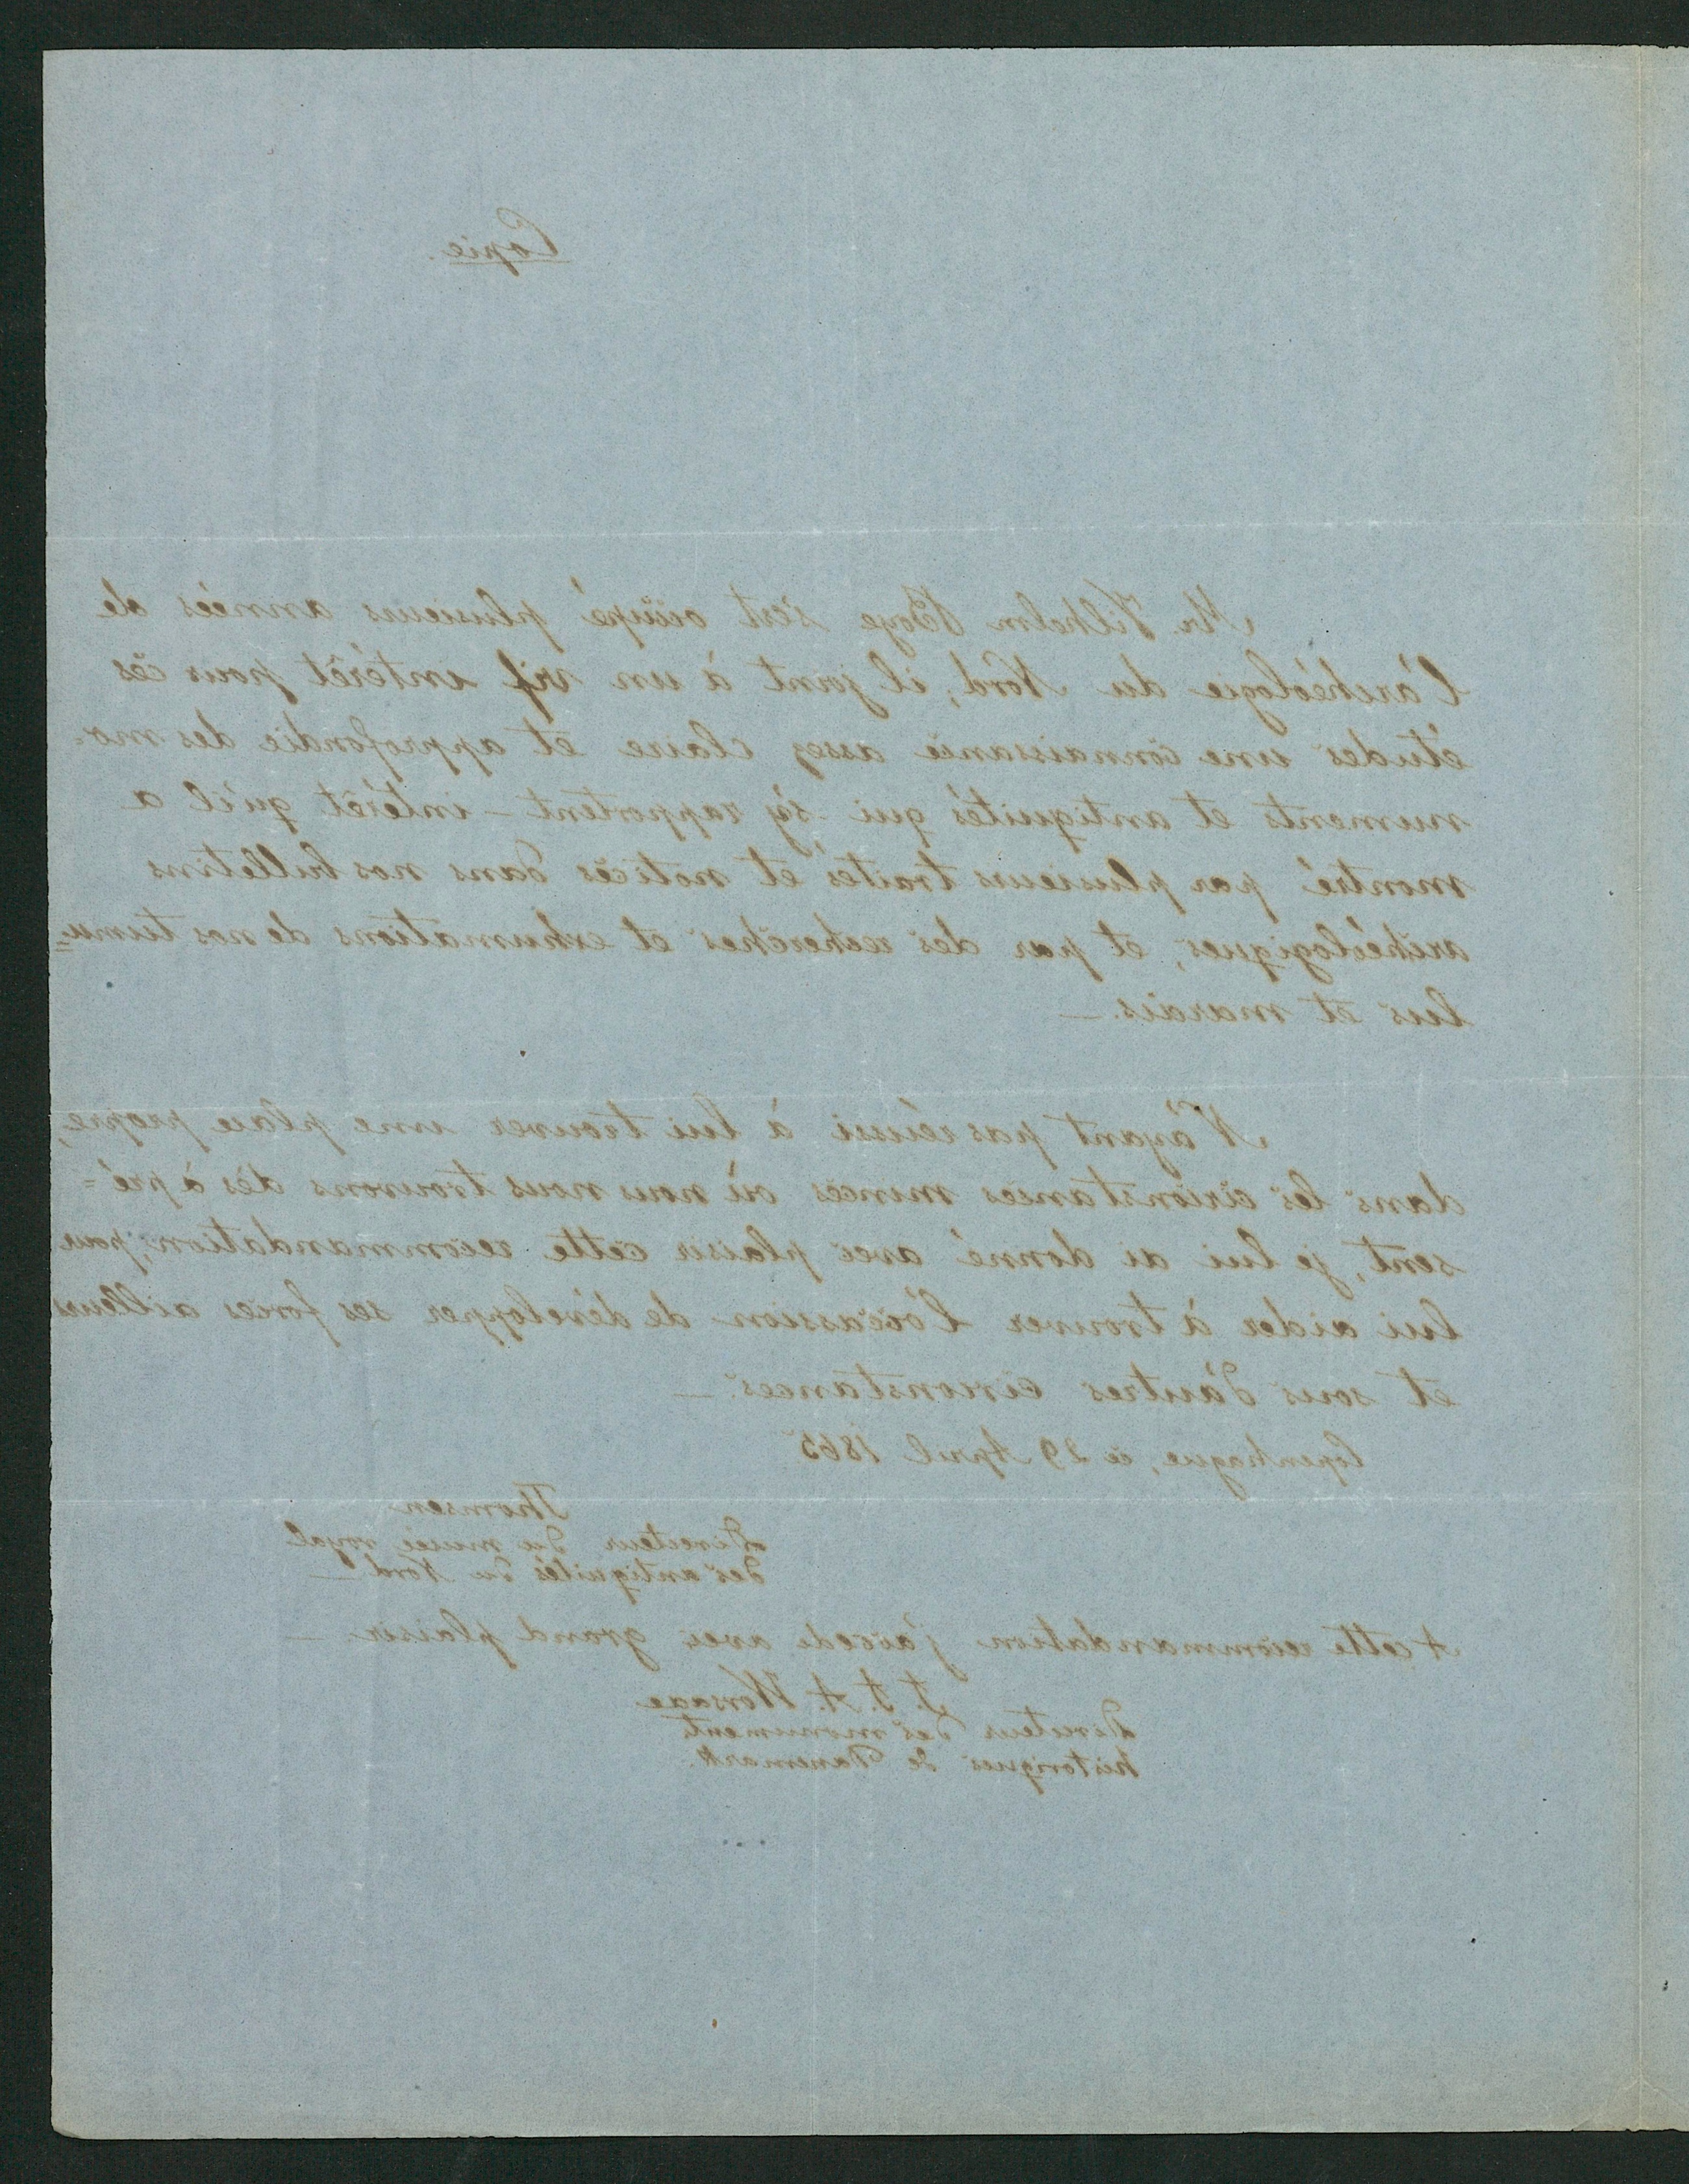 Copie.
Mr. Vilhelm Boye s'est occupé plusieurs années de
l'archéologie du Nord, il joint à un vif intérêt pour ces
études une connaissance assez claire et approfondie des mo-
numents et antiquités qui s'y rapportent – intérêt qu'il a
montré par plusieurs traités et notices dans nos bulletins
archéologiques, et par des recherches et exhumations de nos tumu=
lus et marais. –
N'ayant pas réussi à lui trouver une place propre,
dans les circonstances minces où nous nous trouvons dès à pré=
sent, je lui ai donné avec plaisir cette recommandation, pour
lui aider à trouver l'occassion de développer ses forces ailleurs
et sous d'autres circonstances. –
Copenhague, ce 29 April 1865
Thomsen
Directeur du musée royal
des antiquités du Nord. –
A cette recommandation j'accede avec grand plaisir. –
J. J. A. Worsaae
Directeur des monuments
historiques de Danemark.